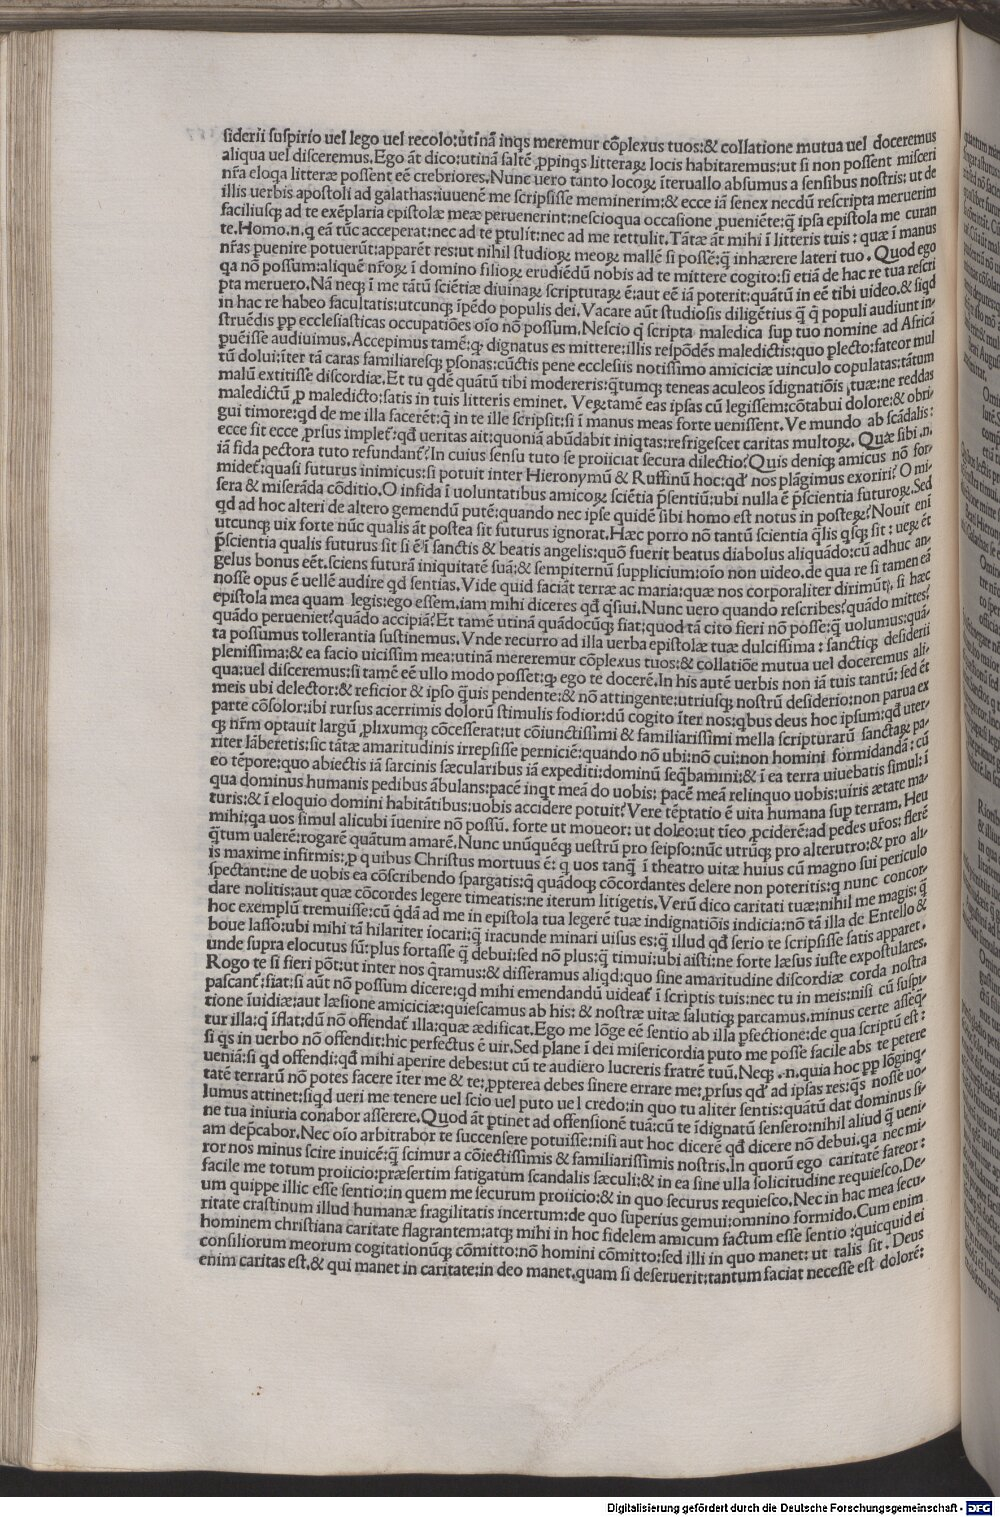 siderii suspirio uel lego uel recolo:utinā inqs meremur cōplexus tuos:& collatione mutua uel doceremus
aliqua uel disceremus.Ego āt dico:utinā saltē ꝓpinqs litteraꝝ locis habitaremus:ut si non possent misceri
nr̄a eloqa litteræ possent eē crebriores.Nunc uero tanto locoꝝ īteruallo absumus a sensibus nostris: ut de
illis uerbis apostoli ad galathas:iuuenē me scripsisse meminerim:& ecce iā senex necdū rescripta meruerim
faciliusqꝫ ad te exēplaria epistolæ meæ peruenerint:nescioqua occasione ꝓueniēte:q̄ ipsa epistola me curan
te.Homo.n.q eā tūc acceperat:nec ad te ꝑtulit:nec ad me rettulit.Tātæ āt mihi ī litteris tuis : quæ ī manus
nr̄as ꝑuenire potuerūt:apparēt res:ut nihil studioꝝ meoꝝ mallē si possē:q̄ inhærere lateri tuo . Quod ego
qa nō possum:aliquē nr̄oꝝ ī domino filioꝝ erudiēdū nobis ad te mittere cogito:si etiā de hac re tua rescri
pta meruero.Nā neqꝫ ī me tātū sciētiæ diuinaꝝ scripturaꝝ ē:aut eē iā poterit:quātū in eē tibi uideo.& siqd
in hac re habeo facultatis:utcunqꝫ īpēdo populis dei.Vacare aūt studiosis diligētius q̄ q̄ populi audiunt in
struēdis ꝑp ecclesiasticas occupatiōes oīo nō possum.Nescio q̄ scripta maledica suꝑ tuo nomine ad Africā
ꝑuēisse audiuimus.Accepimus tamē:qꝫ dignatus es mittere:illis respōdēs maledictis:quo ꝑlecto:fateor mul
tū dolui:īter tā caras familiaresqꝫ ꝑsonas:cūctis pene ecclesiis notissimo amiciciæ uinculo copulatas:tātum
malū extitisse discordiæ.Et tu qdē quātū tibi modereris:q̄tumqꝫ teneas aculeos īdignatiōis tuæ:ne reddas
maledictū ꝓ maledicto:satis in tuis litteris eminet. Veꝝtamē eas ipsas cū legissem:cōtabui dolore:& obri
gui timore:qd de me illa facerēt:q̄ in te ille scripsit:si ī manus meas forte uenissent.Ve mundo ab scādalis:
ecce sit ecce ꝓrsus implet̄:qđ ueritas ait:quoniā abūdabit iniqtas:refrigescet caritas multoꝝ. Quæ sibi .n.
iā fida pectora tuto refundant̄?In cuius sensu tuto se proiiciat secura dilectio?Quis deniqꝫ amicus nō for
midet̄:quasi futurus inimicus:si potuit inter Hieronymū & Ruffinū hoc:qđ nos plāgimus exoriri? O mi
sera & miserāda cōditio.O infida ī uoluntatibus amicoꝝ sciētia p̄sentiū:ubi nulla ē p̄scientia futuroꝝ.Sed
qd ad hoc alteri de altero gemendū putē:quando nec ipse quidē sibi homo est notus in posteꝝ?Nouit eni
utcunqꝫ uix forte nūc qualis āt postea sit futurus ignorat.Hæc porro nō tantū scientia q̄lis qsqꝫ sit : ueꝝ ēt
p̄scientia qualis futurus sit si ē ī sanctis & beatis angelis:quō fuerit beatus diabolus aliquādo:cū adhuc an
gelus bonus eēt.sciens futurā iniquitatē suā:& sempiternū supplicium:oīo non uideo.de qua re si tamen eā
nosse opus ē uellē audire qd sentias.Vide quid faciāt terræ ac maria:quæ nos corporaliter dirimūt. si hæc
epistola mea quam legis:ego essem.iam mihi diceres qđ q̄siui.Nunc uero quando rescribes?quādo mittes?
quādo perueniet?quādo accipiā?Et tamē utinā quādocūqꝫ fiat:quod tā cito fieri nō posse:q̄ uolumus:quā
ta possumus tollerantia sustinemus.Vnde recurro ad illa uerba epistolæ tuæ dulcissima : sanctiqꝫ desiderii
plenissima:& ea facio uicissim mea:utinā mereremur cōplexus tuos:& collatiōe mutua uel doceremus ali
qua:uel disceremus:si tamē eē ullo modo posset:qꝫ ego te docerē.In his autē uerbis non iā tuis tantū: sed ēt
meis ubi delector:& reficior & ipso q̄uis pendente:& nō attingente:utriusqꝫ nostrū desiderio:non parua ex
parte cōsolor:ibi rursus acerrimis dolorū stimulis fodior:dū cogito īter nos:qbus deus hoc ipsum:qđ uter
qꝫ nr̄m optauit largū ꝓlixumqꝫ cōcesserat:ut cōiunctissimi & familiarissimi mella scripturarū sanctaꝝ pa
riter lāberetis:sic tātæ amaritudinis irrepsisse perniciē:quando nō ubi:nō cui:non homini formidandā: cū
eo tēpore:quo abiectis iā sarcinis sæcularibus iā expediti:dominū seq̄bamini:& ī ea terra uiuebatis simul: ī
qua dominus humanis pedibus ābulans:pacē inqt meā do uobis: pacē meā relinquo uobis:uiris ætate ma
turis:& ī eloquio domini habitātibus:uobis accidere potuit?Vere tēptatio ē uita humana suꝑ terram. Heu
mihi:qa uos simul alicubi īuenire nō possū. forte ut moueor: ut doleo:ut tīeo ꝓciderē:ad pedes ur̄os: flerē
q̄tum ualerē:rogarē quātum amarē.Nunc unūquēqꝫ uestrū pro seipso:nūc utrūqꝫ pro alterutro:& pro ali
is maxime infirmis:ꝓ quibus Christus mortuus ē: q uos tanq̄ ī theatro uitæ huius cū magno sui periculo
spectant:ne de uobis ea cōscribendo spargatis:q̄ quādoqꝫ cōcordantes delere non poteritis:q nunc concor
dare nolitis:aut quæ cōcordes legere timeatis:ne iterum litigetis.Verū dico caritati tuæ:nihil me magis: q̄
hoc exemplū tremuisse:cū qdā ad me in epistola tua legerē tuæ indignatiōis indicia:nō tā illa de Entello &
boue lasso:ubi mihi tā hilariter iocari:q̄ iracunde minari uisus es:q̄ illud qđ serio te scripsisse satis apparet.
unde supra elocutus sū:plus fortasse q̄ debui:sed nō plus:q̄ timui:ubi aisti:ne forte læsus iuste expostulares.
Rogo te si fieri pōt:ut inter nos q̄ramus:& disseramus aliqd:quo sine amaritudine discordiæ corda nostra
pascant̄:fiat:si aūt nō possum dicere:qd mihi emendandū uideat̄ ī scriptis tuis:nec tu in meis:nisi cū suspi
tione īuidiæ:aut læsione amiciciæ:quiescamus ab his: & nostræ uitæ salutiqꝫ parcamus.minus certe assēq̄
tur illa:q̄ īflat:dū nō offendat̄ illa:quæ ædificat.Ego me lōge eē sentio ab illa ꝑfectione:de qua scriptū est:
si qs in uerbo nō offendit:hic perfectus ē uir.Sed plane ī dei misericordia puto me posse facile abs te petere
ueniā:si qd offendi:qđ mihi aperire debes:ut cū te audiero lucreris fratrē tuū.Neqꝫ .n.quia hoc ꝑp lōginq
tatē terrarū nō potes facere īter me & te:ꝓpterea debes sinere errare me:ꝓrsus qđ ad ipsas res:q̄s nosse uo
lumus attinet:siqd ueri me tenere uel scio uel puto uel credo:in quo tu aliter sentis:quātū dat dominus si
ne tua iniuria conabor asserere.Quod āt ꝑtinet ad offensionē tuā:cū te īdignatū sensero:nihil aliud q̄ ueni
am dep̄cabor.Nec oīo arbitrabor te succensere potuisse:nisi aut hoc dicerē qđ dicere nō debui.qa nec mi
ror nos minus scire inuicē:q̄ scimur a cōiectissimis & familiarissimis nostris.In quorū ego caritatē fateor :
facile me totum proiicio:præsertim fatigatum scandalis sæculi:& in ea sine ulla solicitudine requiesco.De
um quippe illic esse sentio:in quem me securum proiicio:& in quo securus requiesco.Nec in hac mea secu
ritate crastinum illud humanæ fragilitatis incertum:de quo superius gemui:omnino formido.Cum enim
hominem christiana caritate flagrantem:atqꝫ mihi in hoc fidelem amicum factum esse sentio :quicquid ei
consiliorum meorum cogitationūqꝫ cōmitto:nō homini cōmitto:sed illi in quo manet: ut talis sit. Deus
enim caritas est.& qui manet in caritate:in deo manet.quam si deseruerit:tantum faciat necesse est dolorē:
Digitalisierung gefördert durch die Deutsche Forschungsgemeinschaft - DFG